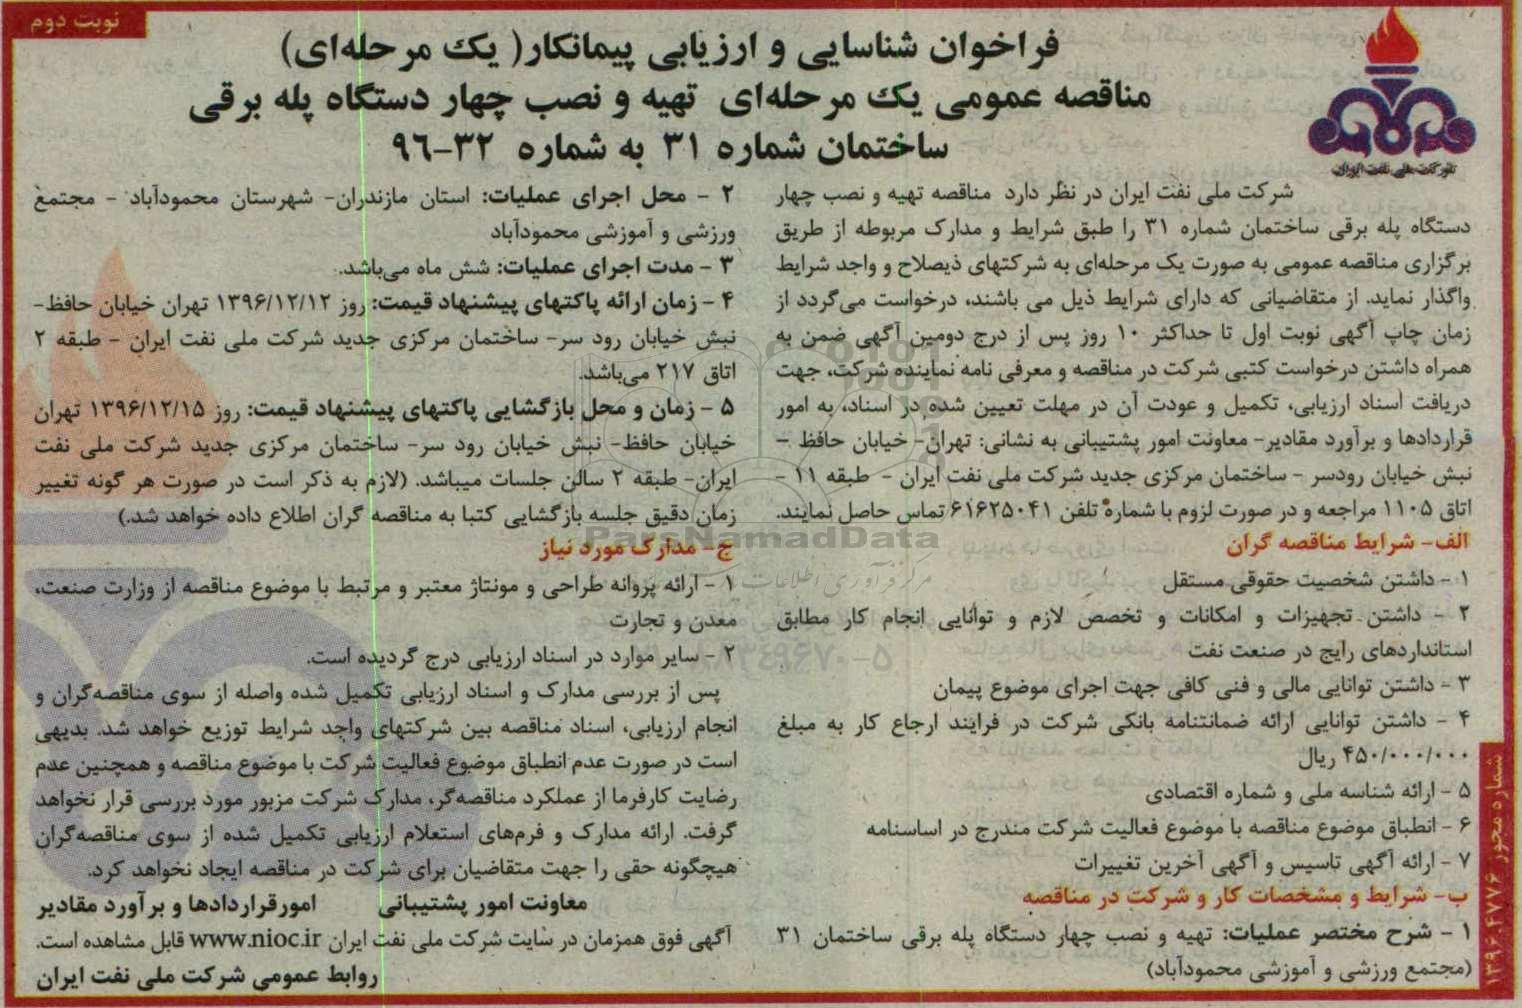 نوبت دوم
فراخوان شناسایی و ارزیابی پیمانکار( یک مرحله‌ای)
مناقصه عمومی یک مرحله‌ای تهیه و نصب چهار دستگاه پله برقی
ساختمان شماره ۳۱ به شماره ۳۲-۹۶
شرکت ملی نفت ایران
شرکت ملی نفت ایران در نظر دارد مناقصه تهیه و نصب چهار
دستگاه پله برقی ساختمان شماره ۳۱ را طبق شرایط و مدارک مربوطه از طریق
برگزاری مناقصه عمومی به صورت یک مرحله‌ای به شرکتهای ذیصلاح و واجد شرایط
واگذار نماید. از متقاضیانی که دارای شرایط ذیل می باشند، درخواست می‌گردد از
زمان چاپ آگهی نوبت اول تا حداکثر ۱۰ روز پس از درج دومین آگهی ضمن به
همراه داشتن درخواست کتبی شرکت در مناقصه و معرفی نامه نماینده شرکت، جهت
دریافت اسناد ارزیابی، تکمیل و عودت آن در مهلت تعیین شده در اسناد، به امور
قراردادها و برآورد مقادیر- معاونت امور پشتیبانی به نشانی: تهران- خیابان حافظ -
نبش خیابان رودسر - ساختمان مرکزی جدید شرکت ملی نفت ایران - طبقه ۱۱ -
اتاق ۱۱۰۵ مراجعه و در صورت لزوم با شماره تلفن ۶۱۶۲۵۰۴۱ تماس حاصل نمایند.
الف- شرایط مناقصه گران
۱ - داشتن شخصیت حقوقی مستقل
۲ - داشتن تجهیزات و امکانات و تخصص لازم و توانایی انجام کار مطابق
استانداردهای رایج در صنعت نفت
۳ - داشتن توانایی مالی و فنی کافی جهت اجرای موضوع پیمان
۴ - داشتن توانایی ارائه ضمانتنامه بانکی شرکت در فرایند ارجاع کار به مبلغ
۴۵۰/۰۰۰/۰۰۰ ریال
۵ - ارائه شناسه ملی و شماره اقتصادی
۶ - انطباق موضوع مناقصه با موضوع فعالیت شرکت مندرج در اساسنامه
۷ - ارائه آگهی تاسیس و آگهی آخرین تغییرات
ب- شرایط و مشخصات کار و شرکت در مناقصه
۱ - شرح مختصر عملیات: تهیه و نصب چهار دستگاه پله برقی ساختمان ۳۱
(مجتمع ورزشی و آموزشی محمودآباد)
۲ - محل اجرای عملیات: استان مازندران- شهرستان محمودآباد - مجتمع
ورزشی و آموزشی محمودآباد
۳ - مدت اجرای عملیات: شش ماه می‌باشد.
۴ - زمان ارائه پاکتهای پیشنهاد قیمت: روز ۱۳۹۶/۱۲/۱۲ تهران خیابان حافظ-
نبش خیابان رود سر- ساختمان مرکزی جدید شرکت ملی نفت ایران - طبقه ۲
اتاق ۲۱۷ می‌باشد.
۵ - زمان و محل بازگشایی پاکتهای پیشنهاد قیمت: روز ۱۳۹۶/۱۲/۱۵ تهران
خیابان حافظ- نبش خیابان رود سر- ساختمان مرکزی جدید شرکت ملی نفت
ایران- طبقه ۲ سالن جلسات میباشد. (لازم به ذکر است در صورت هر گونه تغییر
زمان دقیق جلسه بازگشایی کتبا به مناقصه گران اطلاع داده خواهد شد.)
ج- مدارک مورد نیاز
۱ - ارائه پروانه طراحی و مونتاژ معتبر و مرتبط با موضوع مناقصه از وزارت صنعت،
معدن و تجارت
۲ - سایر موارد در اسناد ارزیابی درج گردیده است.
پس از بررسی مدارک و اسناد ارزیابی تکمیل شده واصله از سوی مناقصه‌گران و
انجام ارزیابی، اسناد مناقصه بین شرکتهای واجد شرایط توزیع خواهد شد. بدیهی
است در صورت عدم انطباق موضوع فعالیت شرکت با موضوع مناقصه و همچنین عدم
رضایت کارفرما از عملکرد مناقصه‌گر، مدارک شرکت مزبور مورد بررسی قرار نخواهد
گرفت. ارائه مدارک و فرم‌های استعلام ارزیابی تکمیل شده از سوی مناقصه‌گران
هیچگونه حقی را جهت متقاضیان برای شرکت در مناقصه ایجاد نخواهد کرد.
معاونت امور پشتیبانی امورقراردادها و برآورد مقادیر
آگهی فوق همزمان در سایت شرکت ملی نفت ایران www.nioc.ir قابل مشاهده است.
روابط عمومی شرکت ملی نفت ایران
شماره مجوز ۱۳۹۶.۴۷۷۶
ParsNamadData
مرکز فرآوری اطلاعات